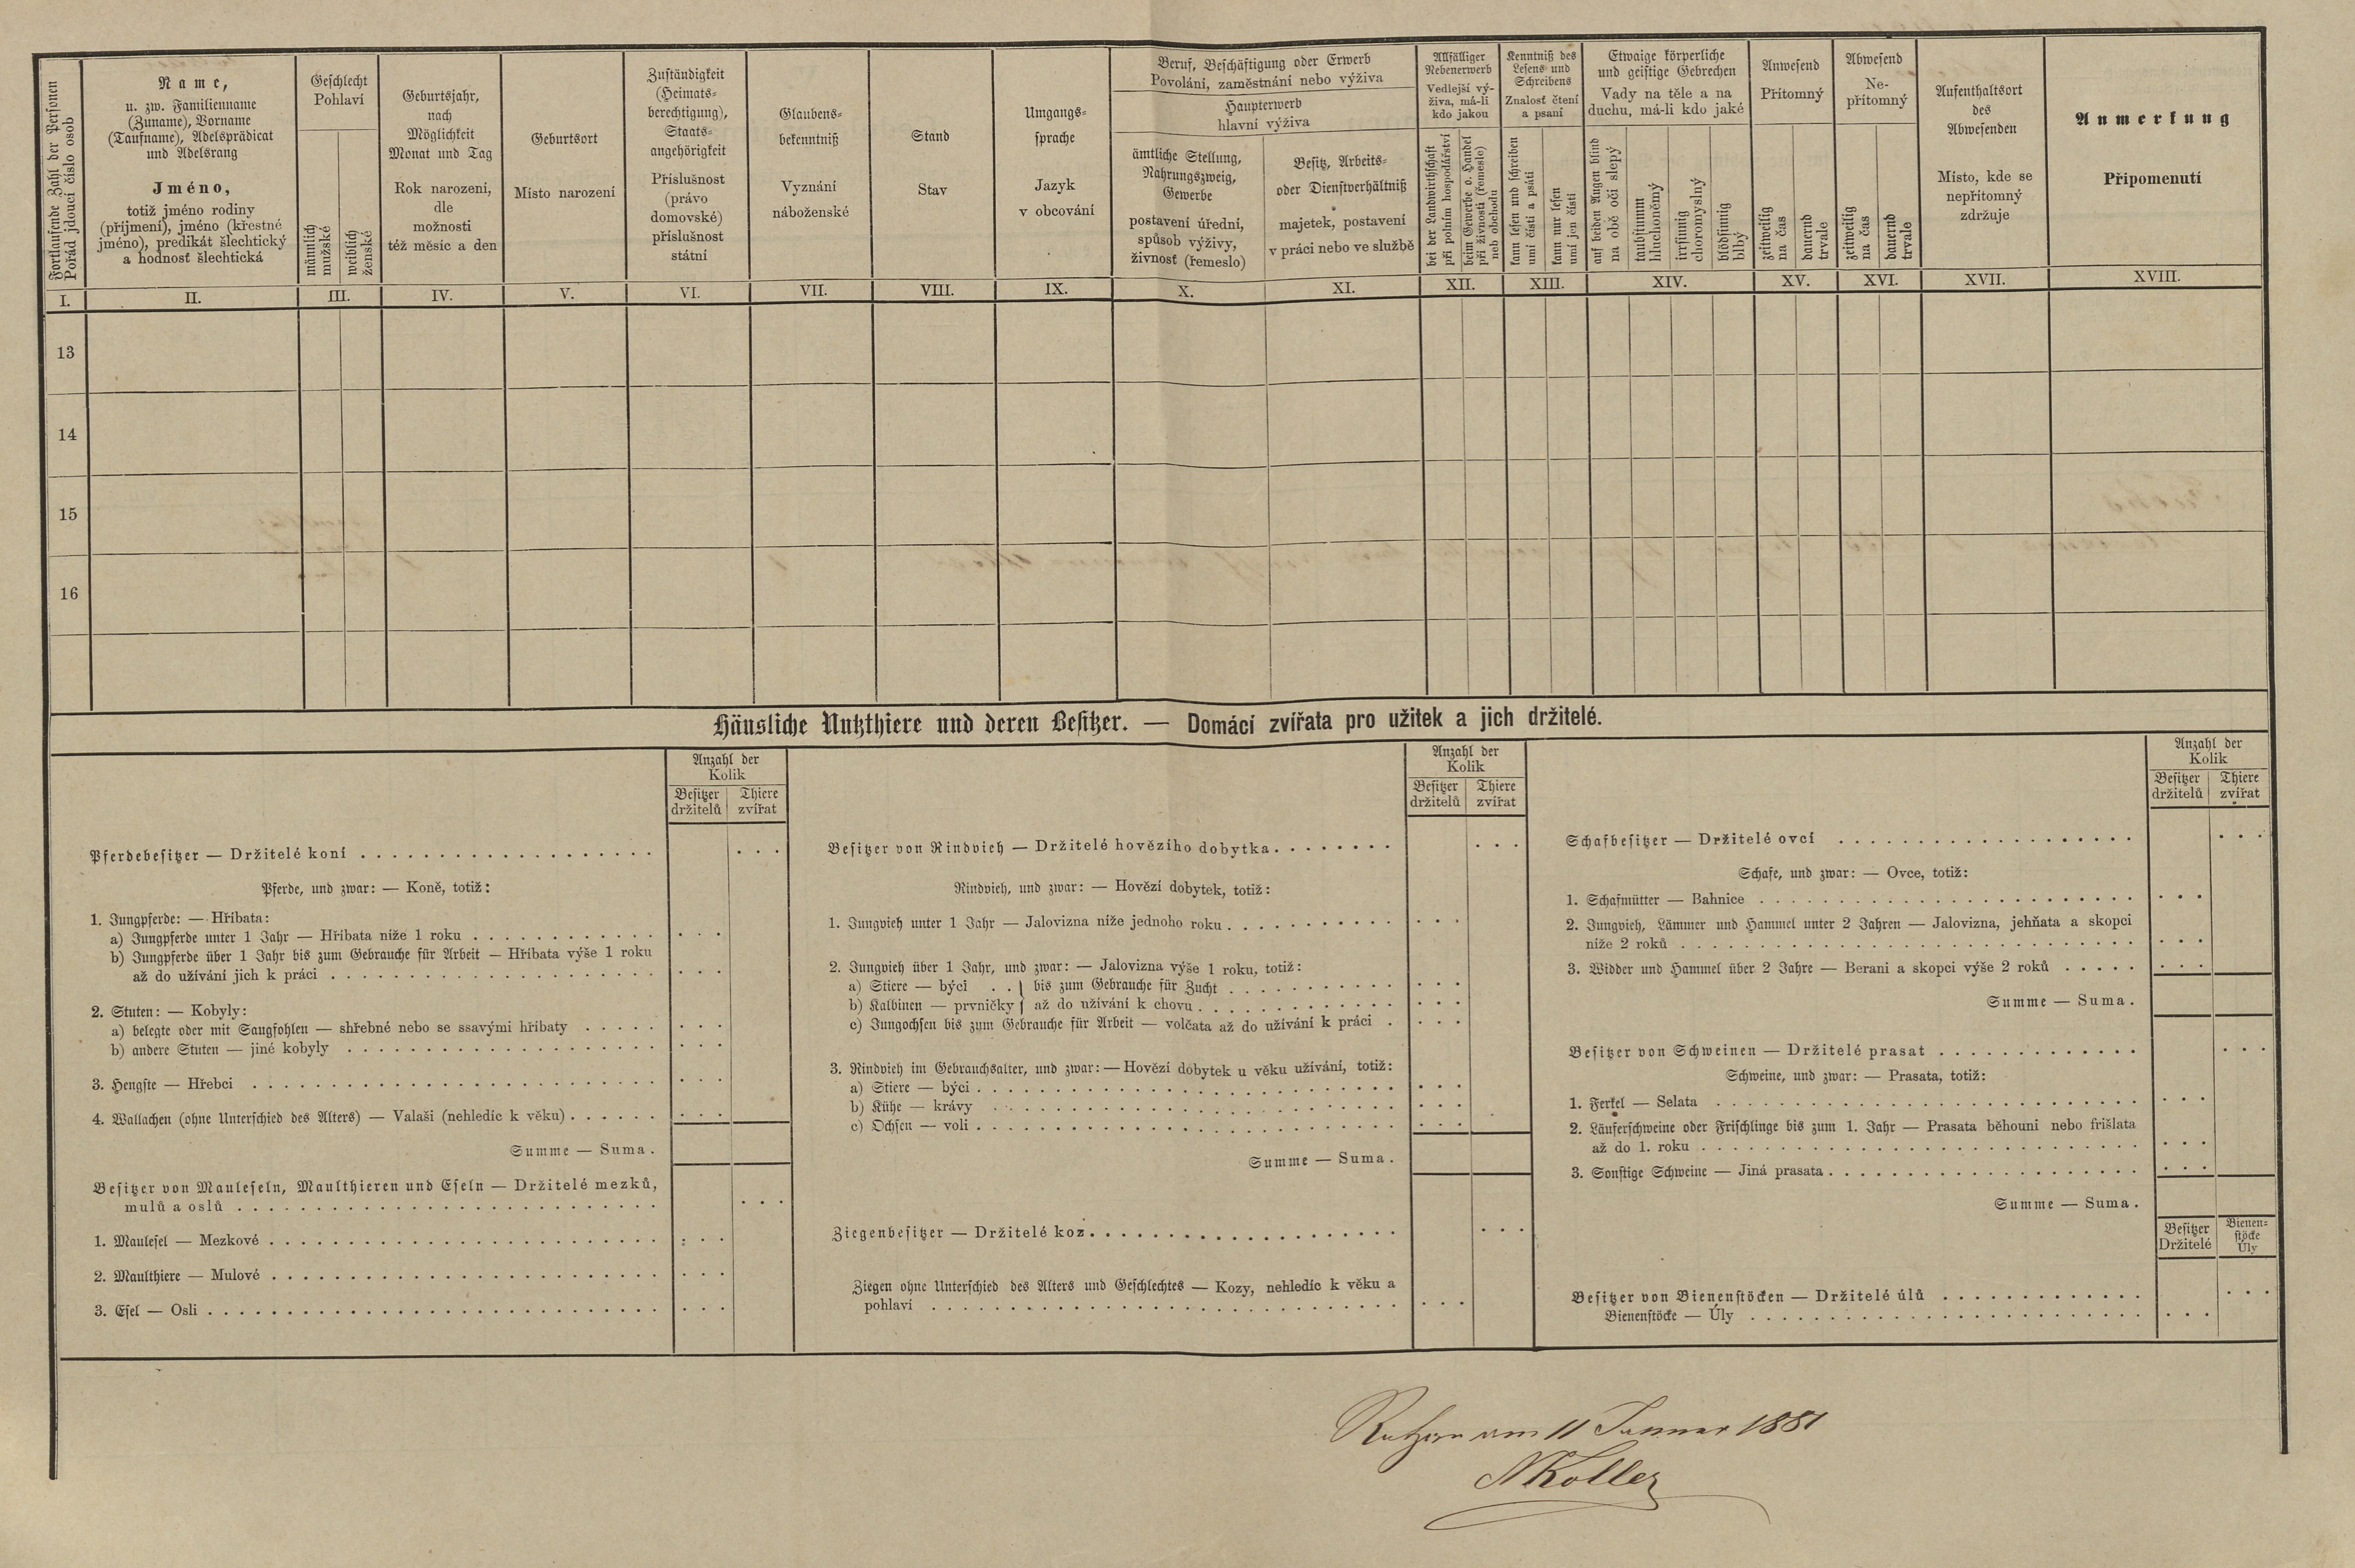 Fortlaufende Zahl der Personen
Pořád jdoucí číslo osob
Name,
u. zw. Familienname
(Zuname), Vorname
(Taufname), Adelsprädicat
und Adelsrang
Jméno,
totiž jméno rodiny
(příjmení), jméno (křestné
jméno), predikát šlechtický
a hodnosť šlechtická
Geschlecht
Pohlaví
männlich
mužské
weiblich
ženské
Geburtsjahr,
nach
Möglichkeit
Monat und Tag
Rok narození,
dle
možnosti
též měsíc a den
Geburtsort
Místo narození
Zuständigkeit
(Heimats-
berechtigung),
Staats-
angehörigkeit
Příslušnost
(právo
domovské)
příslušnost
státní
Glaubens-
bekenntniß
Vyznání
náboženské
Stand
Stav
Umgangs-
sprache
Jazyk
v obcování
Beruf, Beschäftigung oder Erwerb
Povolání, zaměstnání nebo výživa
Haupterwerb
hlavní výživa
ämtliche Stellung,
Nahrungszweig,
Gewerbe
postavení úřední,
spůsob výživy,
živnosť (řemeslo)
Besitz, Arbeits-
oder Dienstverhältniß
majetek, postavení
v práci nebo ve službě
Allfälliger
Nebenerwerb
Vedlejší vý-
živa, má-li
kdo jakou
bei der Landwirthschaft
při polním hospodářství
beim Gewerbe o. Handel
při živnosti (řemesle)
neb obchodu
Kenntniß des
Lesens und
Schreibens
Znalosť čtení
a psaní
kann lesen und schreiben
umí čísti a psáti
kann nur lesen
umí jen čísti
Etwaige körperliche
und geistige Gebrechen
Vady na těle a na
duchu, má-li kdo jaké
auf beiden Augen blind
na obě oči slepý
taubstumm
hluchoněmý
irrsinnig
choromyslný
blödsinnig
blbý
Anwesend
Přítomný
zeitweilig
na čas
dauernd
trvale
Abwesend
Ne-
přítomný
zeitweilig
na čas
dauernd
trvale
Aufenthaltsort
des
Abwesenden
Místo, kde se
nepřítomný
zdržuje
Anmerkung
Připomenutí
I. II. III. IV. V. VI. VII. VIII. IX. X. XI. XII. XIII. XIV. XV. XVI. XVII. XVIII.
13
14
15
16
Häusliche Nutzthiere und deren Besitzer. — Domácí zvířata pro užitek a jich držitelé.
Anzahl der
Kolik
Besitzer Thiere
držitelů zvířat
Pferdebesitzer — Držitelé koní
Pferde, und zwar: — Koně, totiž:
1. Jungpferde: — Hříbata:
a) Jungpferde unter 1 Jahr — Hříbata níže 1 roku
b) Jungpferde über 1 Jahr bis zum Gebrauche für Arbeit — Hříbata výše 1 roku
až do užívání jich k práci
2. Stuten: — Kobyly:
a) belegte oder mit Saugfohlen — shřebné nebo se ssavými hříbaty
b) andere Stuten — jiné kobyly
3. Hengste — Hřebci
4. Wallachen (ohne Unterschied des Alters) — Valaši (nehledíc k věku)
Summe — Suma.
Besitzer von Mauleseln, Maulthieren und Eseln — Držitelé mezků,
mulů a oslů
1. Maulesel — Mezkové
2. Maulthiere — Mulové
3. Esel — Osli
Anzahl der
Kolik
Besitzer Thiere
držitelů zvířat
Besitzer von Rindvieh — Držitelé hovězího dobytka
Rindvieh, und zwar: — Hovězí dobytek, totiž:
1. Jungvieh unter 1 Jahr — Jalovizna níže jednoho roku
2. Jungvieh über 1 Jahr, und zwar: — Jalovizna výše 1 roku, totiž:
a) Stiere — býci . . } bis zum Gebrauche für Zucht
b) Kalbinen — prvničky } až do užívání k chovu
c) Jungochsen bis zum Gebrauche für Arbeit — volčata až do užívání k práci
3. Rindvieh im Gebrauchsalter, und zwar: — Hovězí dobytek u věku užívání, totiž:
a) Stiere — býci
b) Kühe — krávy
c) Ochsen — voli
Summe — Suma.
Ziegenbesitzer — Držitelé koz
Ziegen ohne Unterschied des Alters und Geschlechtes — Kozy, nehledíc k věku a
pohlaví
Anzahl der
Kolik
Besitzer Thiere
držitelů zvířat
Schafbesitzer — Držitelé ovcí
Schafe, und zwar: — Ovce, totiž:
1. Schafmütter — Bahnice
2. Jungvieh, Lämmer und Hammel unter 2 Jahren — Jalovizna, jehňata a skopci
níže 2 roků
3. Widder und Hammel über 2 Jahre — Berani a skopci výše 2 roků
Summe — Suma.
Besitzer von Schweinen — Držitelé prasat
Schweine, und zwar: — Prasata, totiž:
1. Ferkel — Selata
2. Läuferschweine oder Frischlinge bis zum 1. Jahr — Prasata běhouni nebo frišlata
až do 1. roku
3. Sonstige Schweine — Jiná prasata
Summe — Suma.
Besitzer
Držitelé
Bienen-
stöcke
Úly
Besitzer von Bienenstöcken — Držitelé úlů
Bienenstöcke — Úly
am 11 Januar 1881
Koller